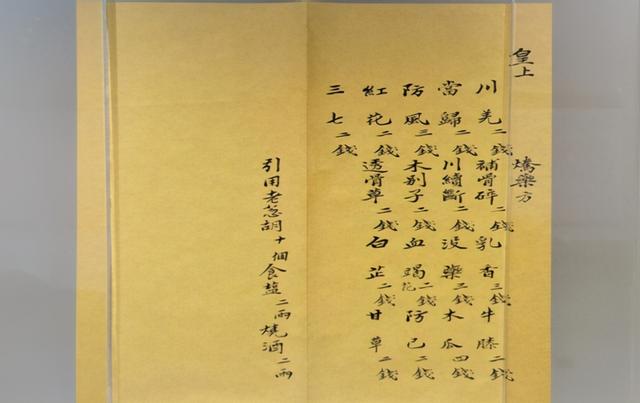 皇上 藥方
川羌二錢 補骨碎二錢 乳香三錢 牛膝二錢
當歸二錢 川續斷二錢 沒藥三錢 木瓜四錢
防風三錢 木别子二錢 血竭花二錢 防已二錢
紅花二錢 透骨草二錢 白芷二錢 甘草二錢
三七二錢
引用老葱胡十個食鹽二兩燒酒二兩